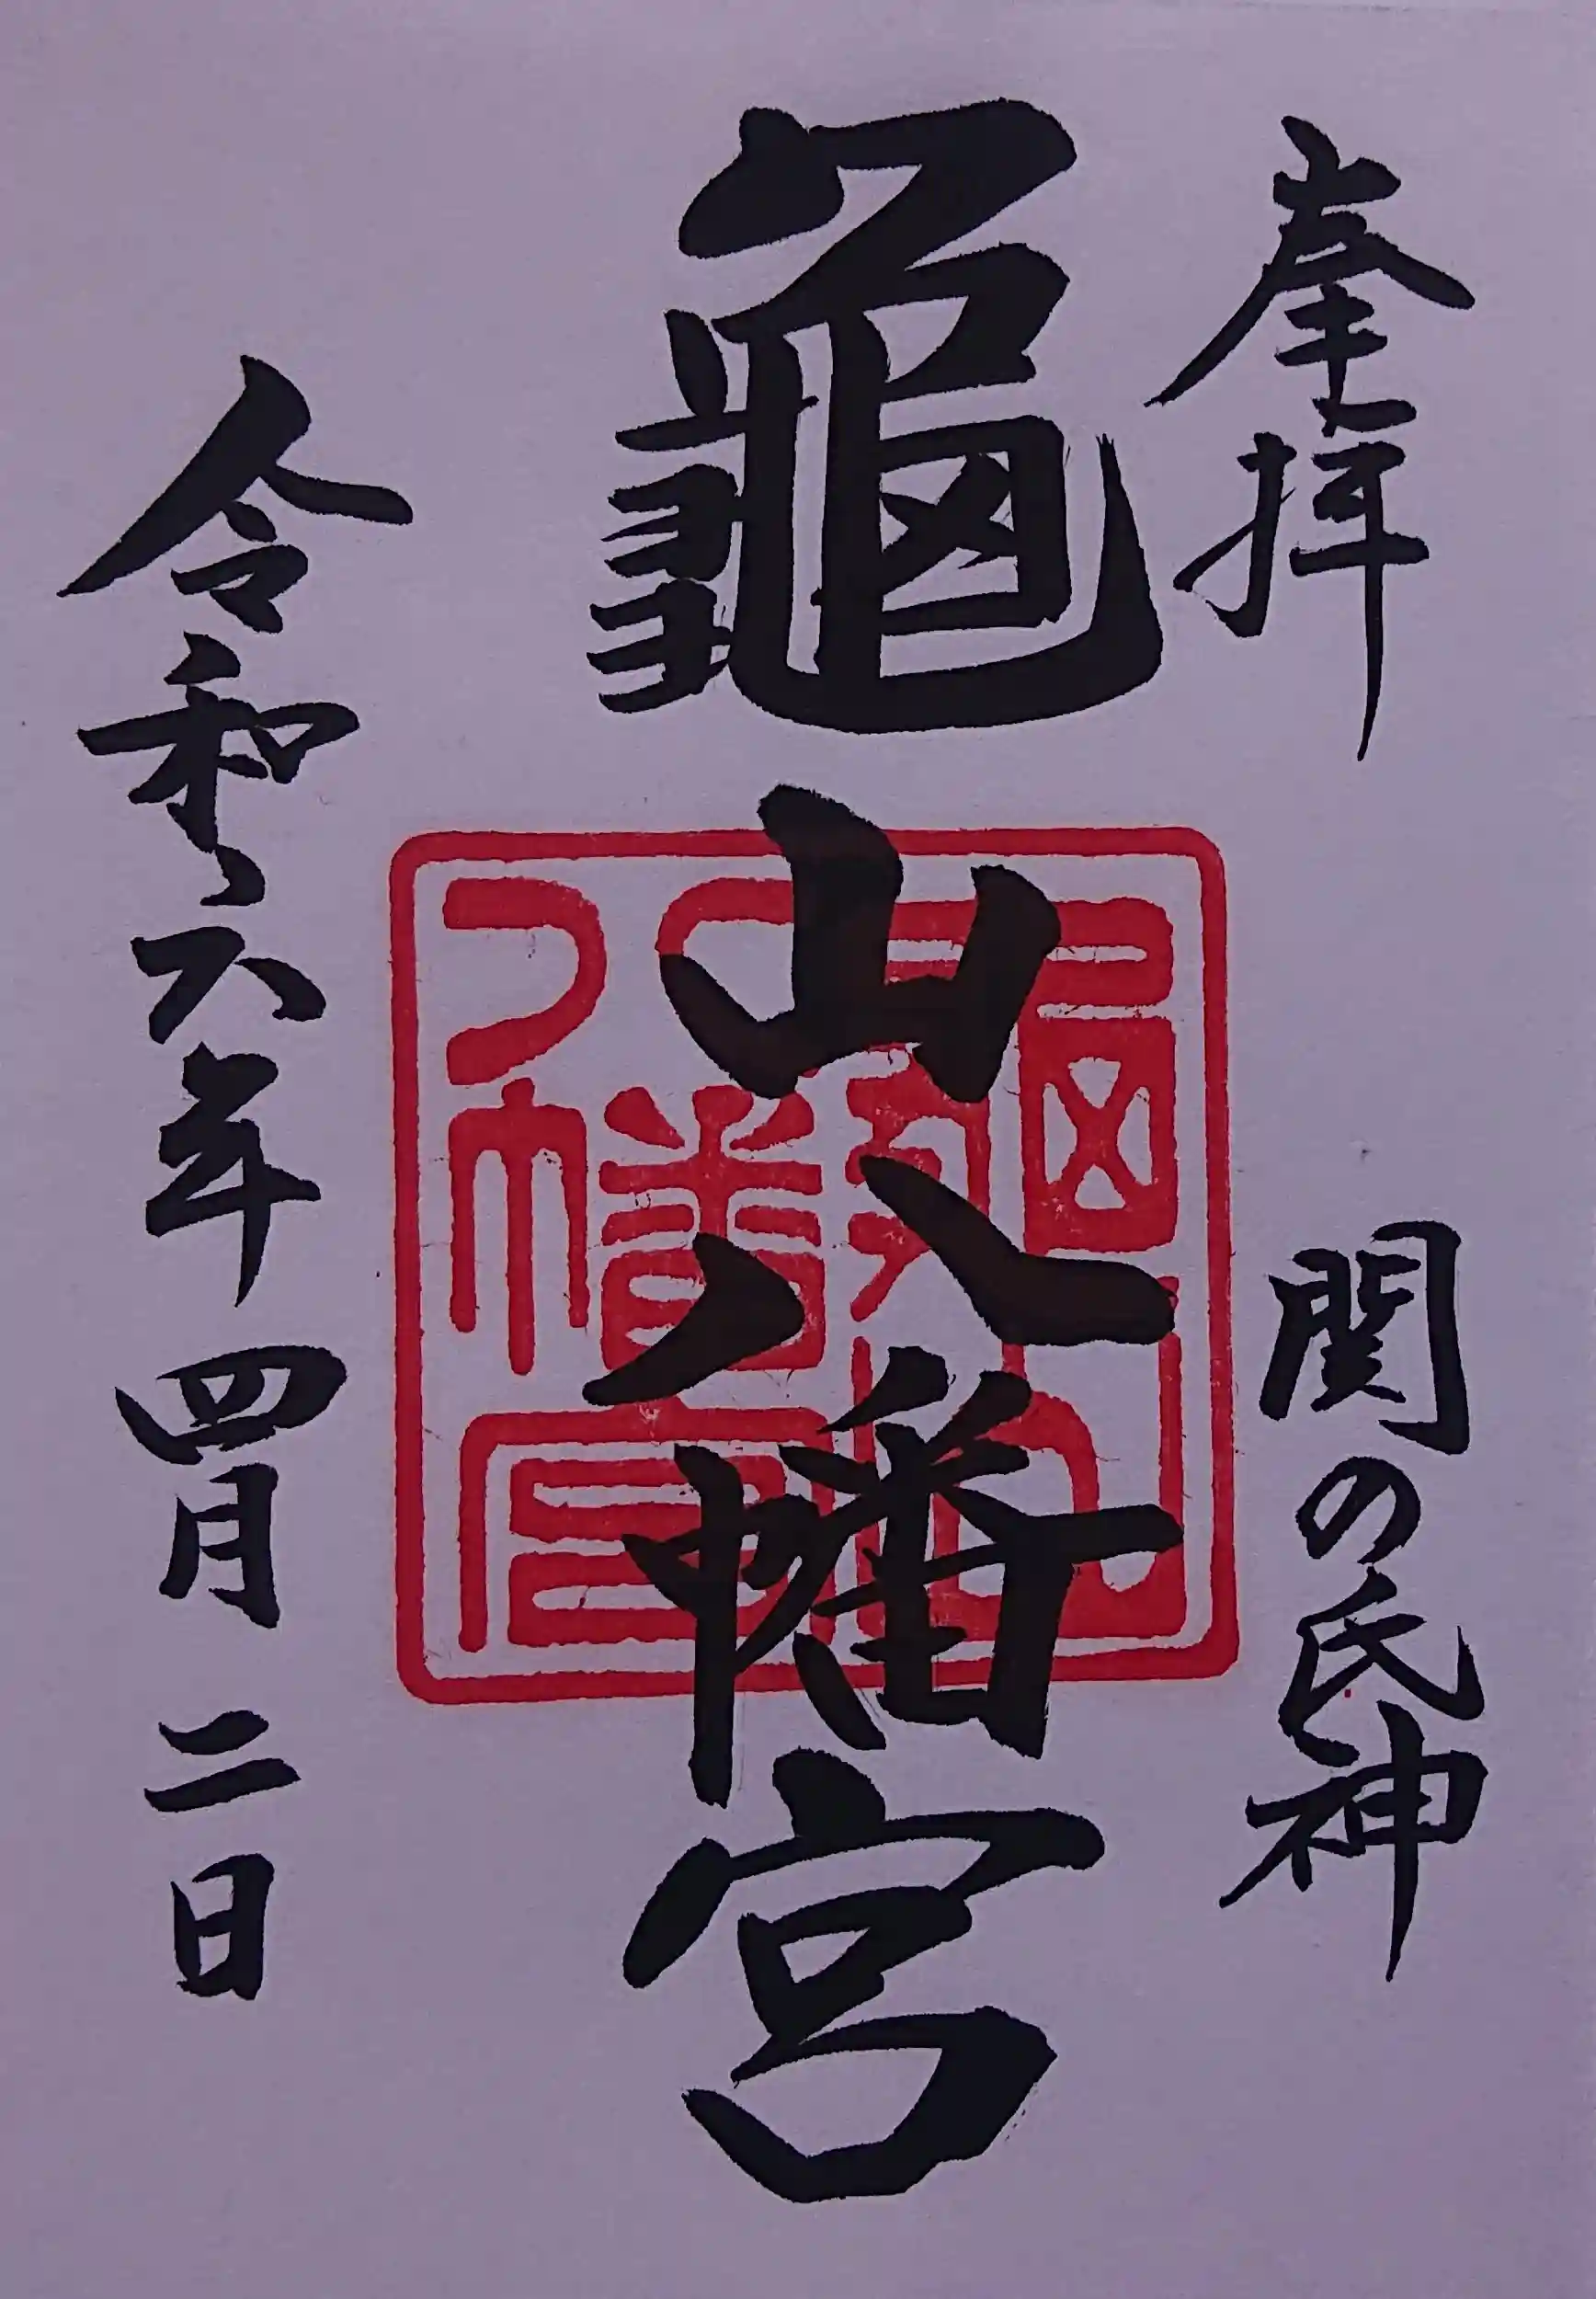 奉拝
関の氏神
龜山八幡宮
龜山八幡宮
令和六年四月二日